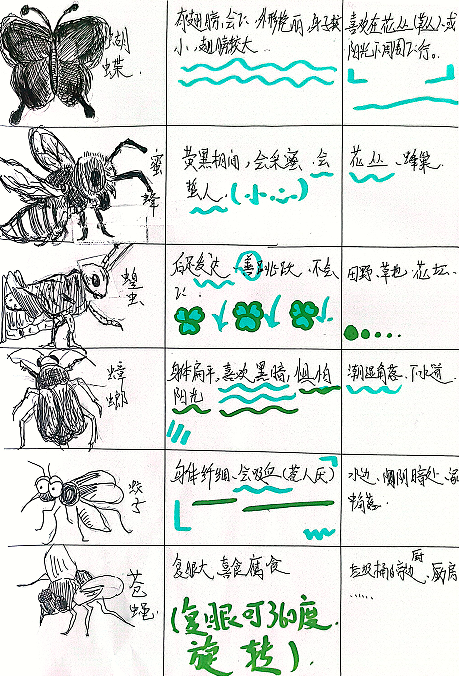 蝴
蝶.
有翅膀,会飞.外形艳丽,身子较
小,翅膀较大.
喜欢在花丛(草丛)、或
阳光下周围飞行。
蜜
蜂
黄黑相间,会采蜜、会
蜇人.(小心)
花丛、蜂巢.
蝗
虫
后足发达、善跳跃、不会
飞.
田野、草地、花坛、
蟑
螂
身体扁平,喜欢黑暗,惧怕
阳光
潮湿角落、下水道
蚊
子
身体纤细、会吸血(惹人厌)
水边、阴暗处、
角落.
苍
蝇.
复眼大,喜食腐食
(复眼可360度
旋转).
垃圾桶旁边、厨房
......